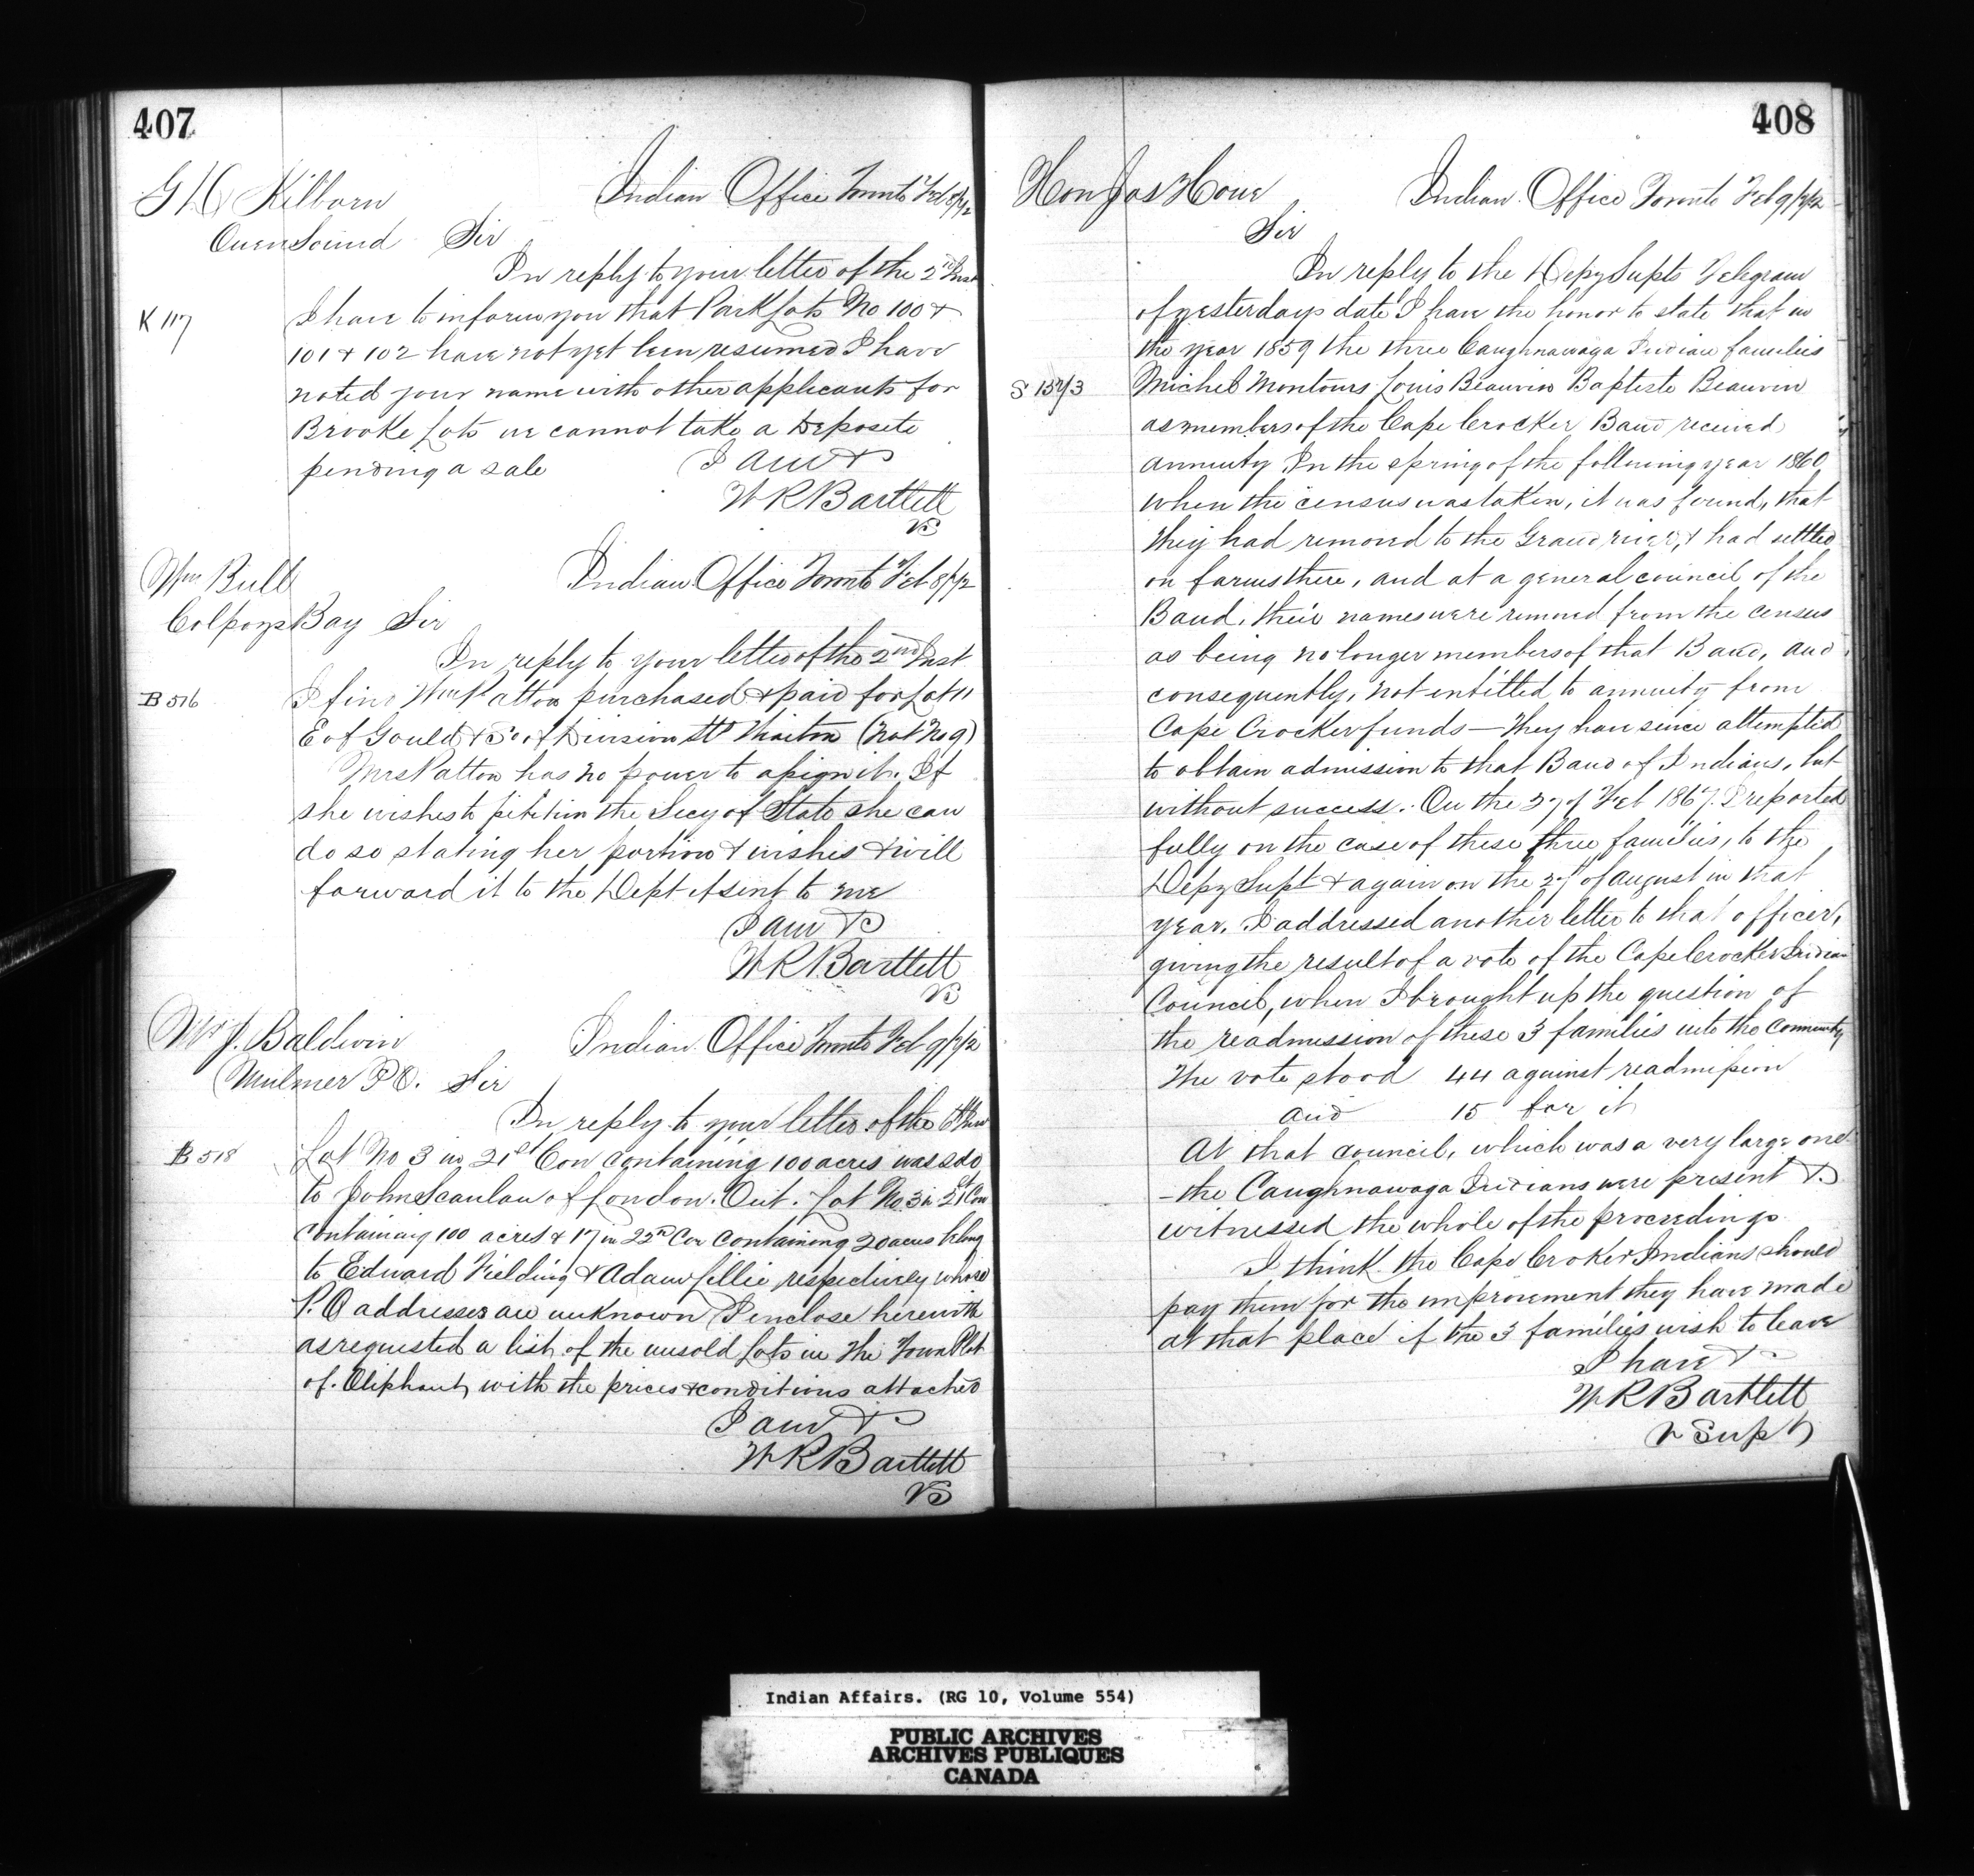 407
G H Kilborn Indian Office Toronto Feb 8/72
Owen Sound Sir
In reply to your letter of the 2nd Inst
K 117 I have to inform you that Park Lots No 100 &
101 & 102 have not yet been resumed I have
noted your name with other applicants for
Brooke Lots we cannot take a Deposite
pending a sale I am &
W R Bartlett
VS
Wm Bull Indian Office Toronto Feb 8/72
Colpoys Bay Sir
In reply to your letter of the 2nd Inst
B 516 I find Wm Patton purchased & paid for Lot 11
E of Gould & S of Division St Wiarton (not No 9)
Mrs Patton has no power to assign it. If
she wishes to petition the Secy of State she can
do so stating her portion & wishes & will
forward it to the Dept if sent to me
I am &
W R Bartlett
VS
Mr J. Baldwin Indian Office Toronto Feb 9/72
Mulmer P O. Sir
In reply to your letter of the 6th Inst
B 518 Lot No 3 in 21st Con containing 100 acres was sold
to John Scanlan of London. Ont. Lot No 3 in 21st Con
containing 100 acres & 17 in 22nd Con containing 20 acres belong
to Edward Fielding & Adam Lillie respectively whose
P. O addresses are unknown I enclose herewith
as requested a list of the unsold Lots in the Town Plot
of Oliphant, with the prices & conditions attached
I am &
W R Bartlett
VS
408
Hon Jos Howe Indian Office Toronto Feb 9/72
Sir
In reply to the Depy Supts Telegram
of yesterdays date I have the honor to state that in
the year 1859 the three Caughnawaga Indian families
S 1573 Michel Montours Louis Beauvin Baptiste Beauvin
as members of the Cape Crocker Band received
annuity In the spring of the following year 1860
when the census was taken, it was found, that
they had removed to the Grand river, & had settled
on farms there, and at a general council of the
Band, their names were removed from the census
as being no longer members of that Band, and
consequently, not entitled to annuity from
Cape Crocker funds — They have since attempted
to obtain admission to that Band of Indians, but
without success. On the 27 of Feb 1867. I reported
fully on the case of these three families, to the
Depy Supt & again on the 27 of August in that
year. I addressed another letter to that officer,
giving the result of a vote of the Cape Crocker Indian
Council, when I brought up the question of
the readmission of these 3 families into the Community
The vote stood 44 against readmission
and 15 for it
At that council, which was a very large one
— the Caughnawaga Indians were present &
witnessed the whole of the proceedings
I think the Cape Croker Indians should
pay them for the improvement they have made
at that place if the 3 families wish to leave
I have &
W R Bartlett
V Supt
Indian Affairs. (RG 10, Volume 554)
PUBLIC ARCHIVES
ARCHIVES PUBLIQUES
CANADA